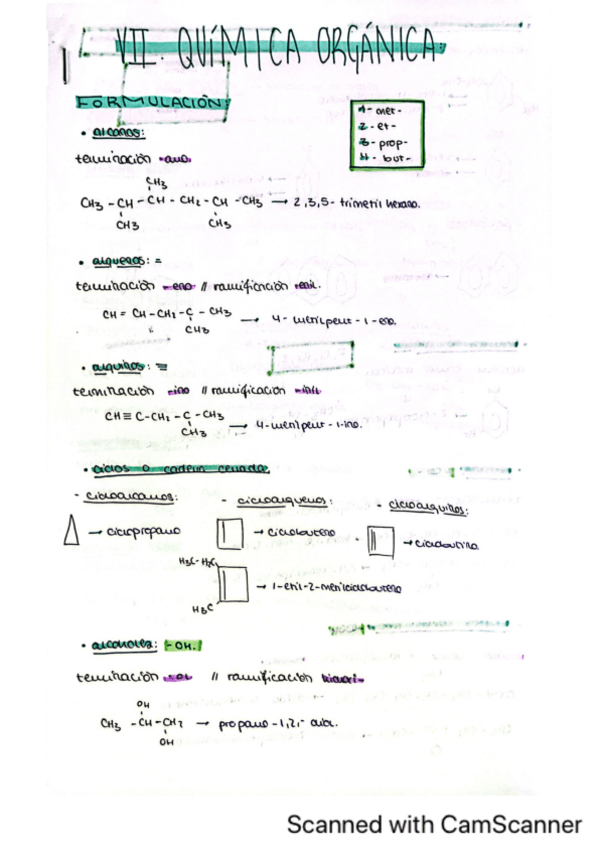 VII. QUÍMICA ORGÁNICA
FORMULACIÓN
1- met-
2- et-
3- prop-
4- but-
• alcanos:
terminación -ano.
CH3
CH3 - CH - CH - CH2 - CH - CH3 → 2,3,5- trimetil hexano.
CH3 CH3
• alquenos: =
terminación -eno // ramificación -enil.
CH = CH - CH2 - C - CH3 → 4- metilpent-1-eno.
CH3
• alquinos: ≡
terminación -ino // ramificación -inil
CH ≡ C - CH2 - C - CH3 → 4-metilpent-1-ino.
CH3
• ciclos o cadena cerrada.
- cicloalcanos: - cicloalquenos: - cicloalquinos:
→ ciclopropano → ciclobuteno → ciclobutino
H3C-H2C
→ 1-etil-2-metilciclobuteno
H3C
• alcoholes: -OH.
terminación -ol // ramificación hidroxi-
OH
CH3 - CH - CH2 → propano-1,2,- diol.
OH
Scanned with CamScanner